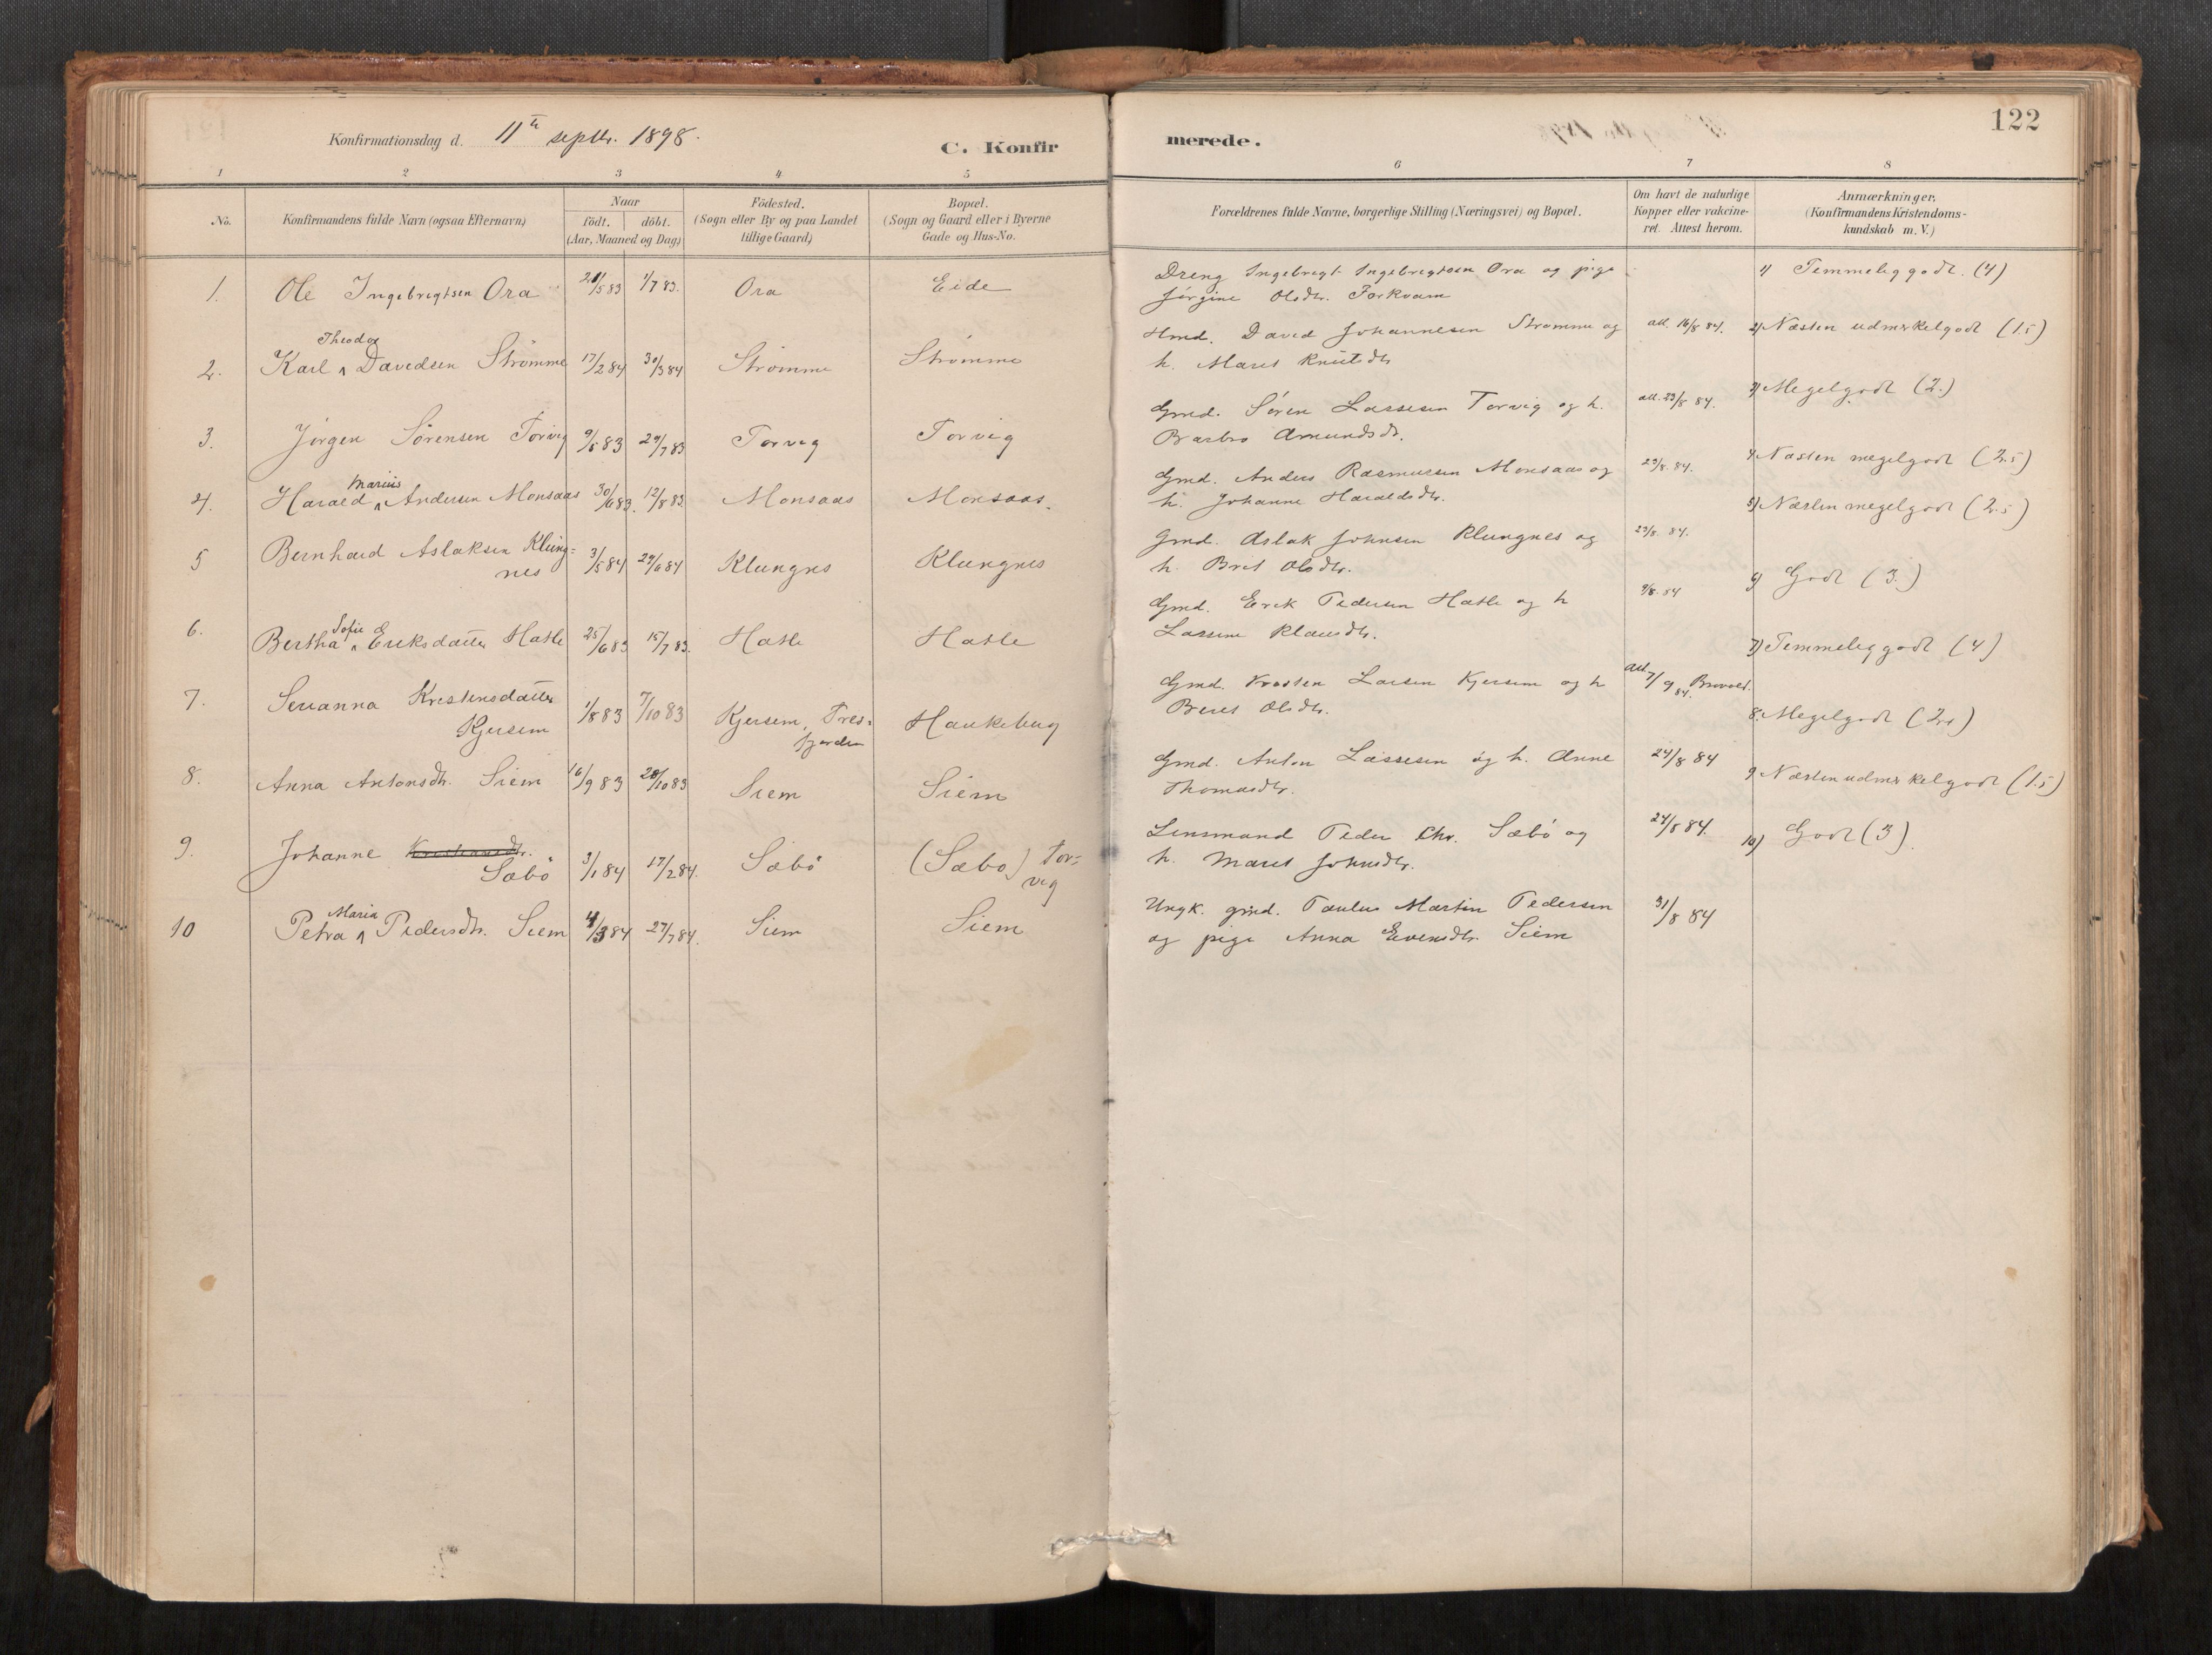 Konfirmationsdag d. 11te septbr. 1898.
C. Konfir
1 2 3 4 5
No.
Konfirmandens fulde Navn (ogsaa Efternavn)
Naar
födt. döbt.
(Aar, Maaned og Dag)
Födested.
(Sogn eller By og paa Landet
tillige Gaard)
Bopæl.
(Sogn og Gaard eller i Byerne
Gade og Hus-No.
1. Ole Ingebrigtsen Ora 5 83 1/7 83. Ora Eide
Theodor
2. Karl ∧ Davidsen Strömme 17/2 84 30/3 84 Strömme Strömme
3. Jörgen Sörensen Torvig 83 29/7 83 Torvig Torvig
Marius
4. Harald ∧ Andersen Monsaas 30/6 83. 12/8 83. Monsaas Monsaas.
5 Bernhard Aslaksen Klung=
nes 3/5 84 29/6 84 Klungnes Klungnes
Sofie
6. Bertha ∧ Eriksdatter Hatle 25/6 83 15/7 83. Hatle Hatle
7. Kristensdatter
Kjersem 1/8 83 7/10 83 Kjersem, Tres=
fjorden
8. Anna Antonsdtr. Siem 16/9 83 28/10 83 Siem Siem
9. Johanne
Sæbö 3/1 84 17/2 84. Sæbö (Sæbö) Tor=
vig
Maria
10 Petra ∧ Pedersdtr. Siem 3 84 27/7 84. Siem Siem
122
merede.
6 7 8
Forældrenes fulde Navne, borgerlige Stilling (Næringsvei) og Bopæl.
Om havt de naturlige
Kopper eller vakcine-
ret. Attest herom.
Anmærkninger.
(Konfirmandens Kristendoms-
kundskab m. V.)
Dreng Ingebrigt Ingebrigtsen Ora og pige
Jörgine Olsdtr. Torkvam
1) Temmelig godt. (4)
Hmd. David Johannesen Strömme og
h. Maret Knutsdtr
att. 16/8 84.
2) Næsten udmerket godt (1.5)
Gmd. Sören Lassesen Torvig og h.
Barbro Amundsdtr.
att. 23/8 84.
3) Meget godt (2.)
Gmd. Anders Rasmussen Monsaas og
h. Johanne Haraldsdtr.
23/8. 84.
4) Næsten meget godt (2.5)
Gmd. Aslak Johnsen Klungnes og
h. Bret Olsdtr.
23/8. 84.
5) Næsten meget godt (2.5)
Gmd. Erik Pedersen Hatle og h
Lassine Klausdtr.
9/8. 84
6) Godt (3.)
Gmd. Larsen Kjersem og h
Beret Olsdtr.
att. 7/9 84.
7) Temmelig godt (4)
Gmd. Anton Lassesen og h. Anne
Thomasdtr.
24/8 84
8. Meget godt
Lensmand Peder Chr. Sæbö og
h. Maret Johnsdtr.
24/8 84.
9 Næsten udmerket godt (1.5)
Ungk. gmd. Paulus Martin Pedersen
og pige Anna Evensdtr. Siem
31/8 84
10) Godt (3).